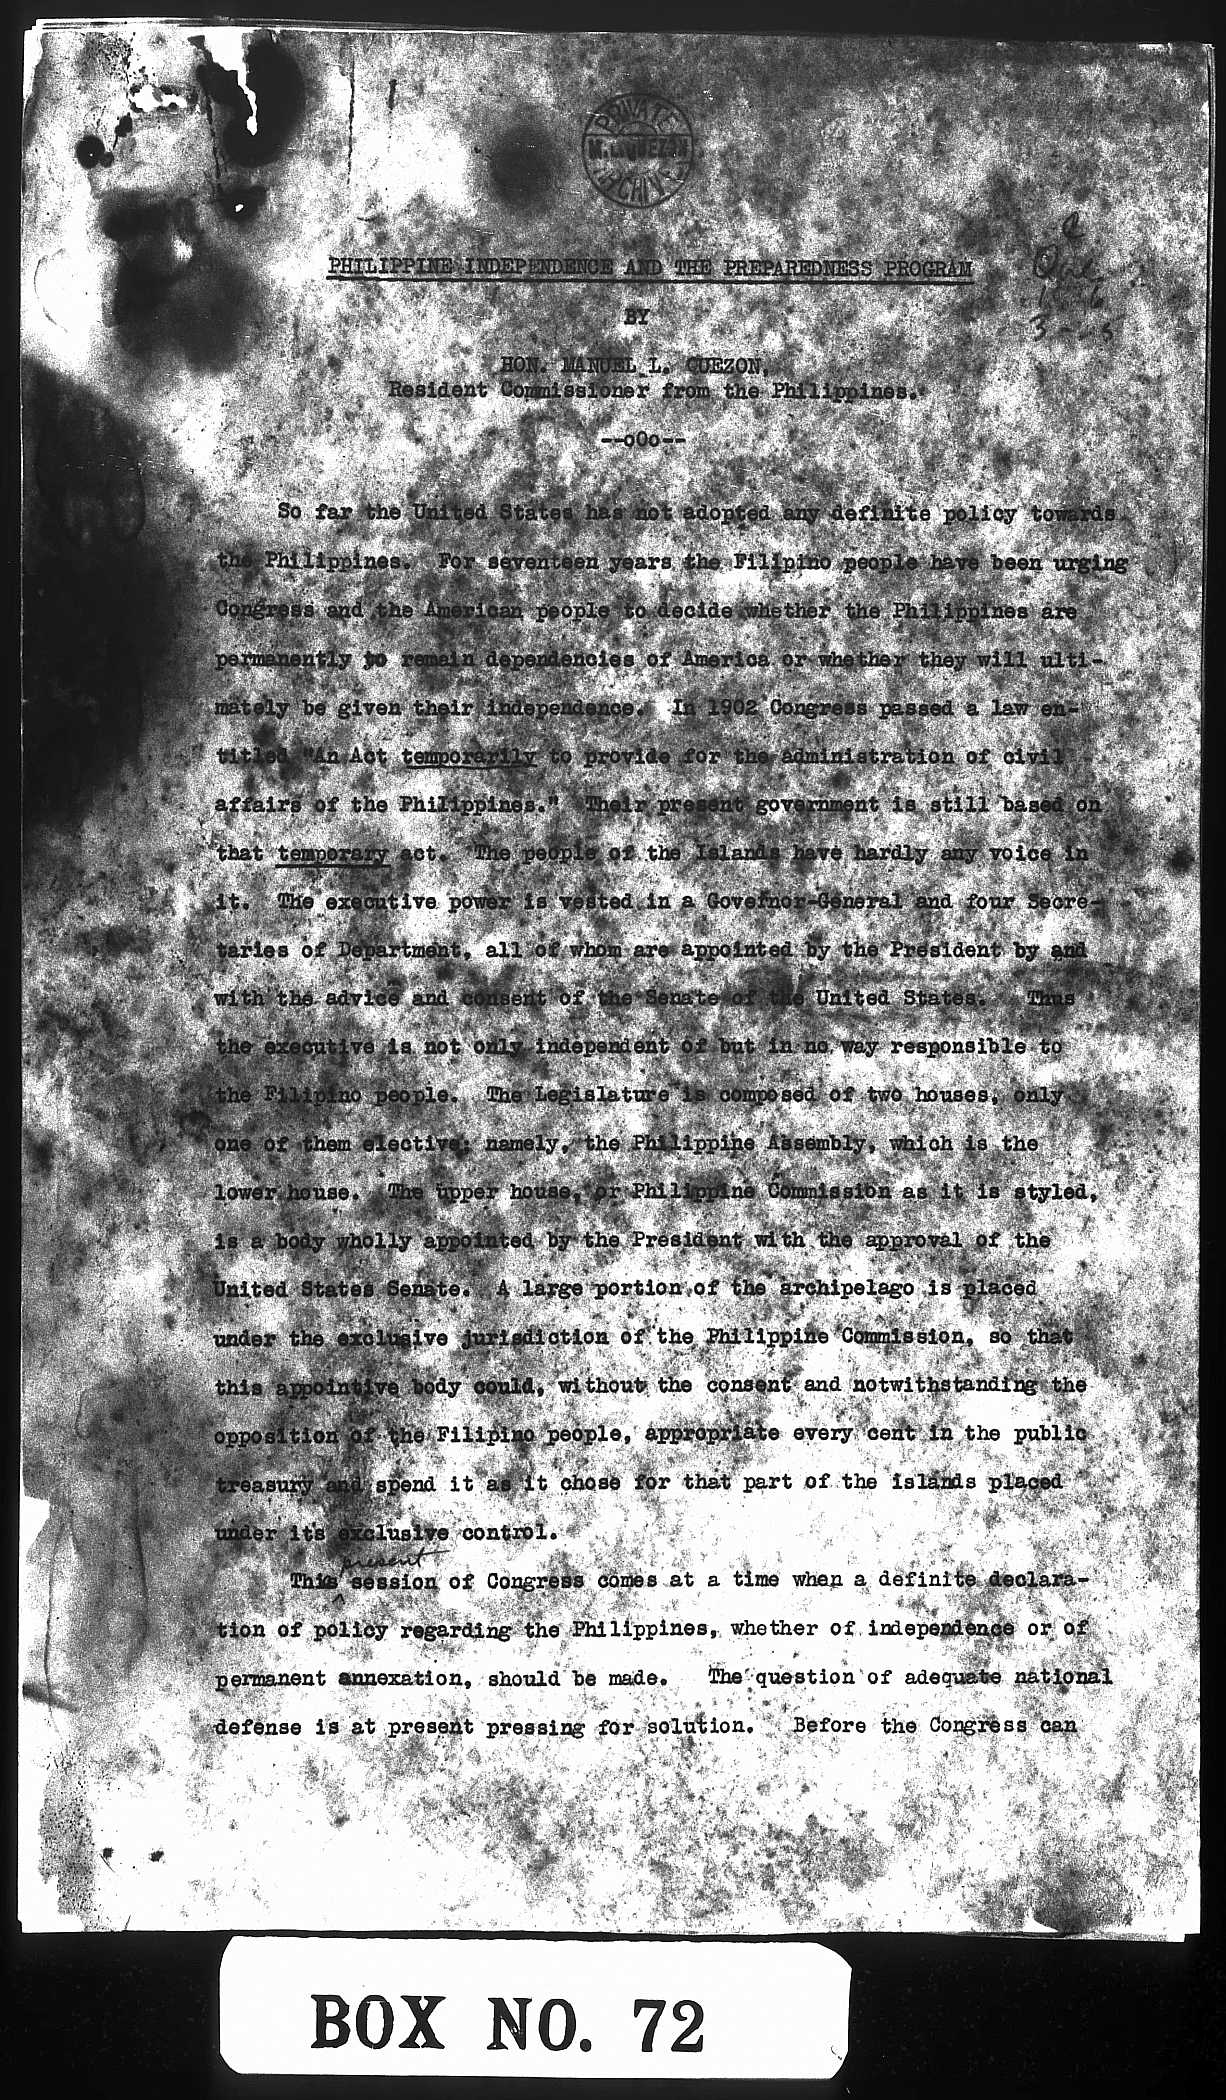 PRIVATE
M. L. QUEZON
ARCHIVE
PHILIPPINE INDEPENDENCE AND THE PREPAREDNESS PROGRAM
BY
HON. MANUEL L. QUEZON,
Resident Commissioner from the Philippines.
--oOo--
So far the United States has not adopted any definite policy towards
the Philippines. For seventeen years the Filipino people have been urging
Congress and the American people to decide whether the Philippines are
permanently to remain dependencies of America or whether they will ulti-
mately be given their independence. In 1902 Congress passed a law en-
titled "An Act temporarily to provide for the administration of civil
affairs of the Philippines." Their present government is still based on
that temporary act. The people of the Islands have hardly any voice in
it. The executive power is vested in a Governor-General and four Secre-
taries of Department, all of whom are appointed by the President by and
with the advice and consent of the Senate of the United States. Thus
the executive is not only independent of but in no way responsible to
the Filipino people. The Legislature is composed of two houses, only
one of them elective; namely, the Philippine Assembly, which is the
lower house. The upper house, or Philippine Commission as it is styled,
is a body wholly appointed by the President with the approval of the
United States Senate. A large portion of the archipelago is placed
under the exclusive jurisdiction of the Philippine Commission, so that
this appointive body could, without the consent and notwithstanding the
opposition of the Filipino people, appropriate every cent in the public
treasury and spend it as it chose for that part of the islands placed
under its exclusive control.
present
This session of Congress comes at a time when a definite declara-
tion of policy regarding the Philippines, whether of independence or of
permanent annexation, should be made. The question of adequate national
defense is at present pressing for solution. Before the Congress can
BOX NO. 72